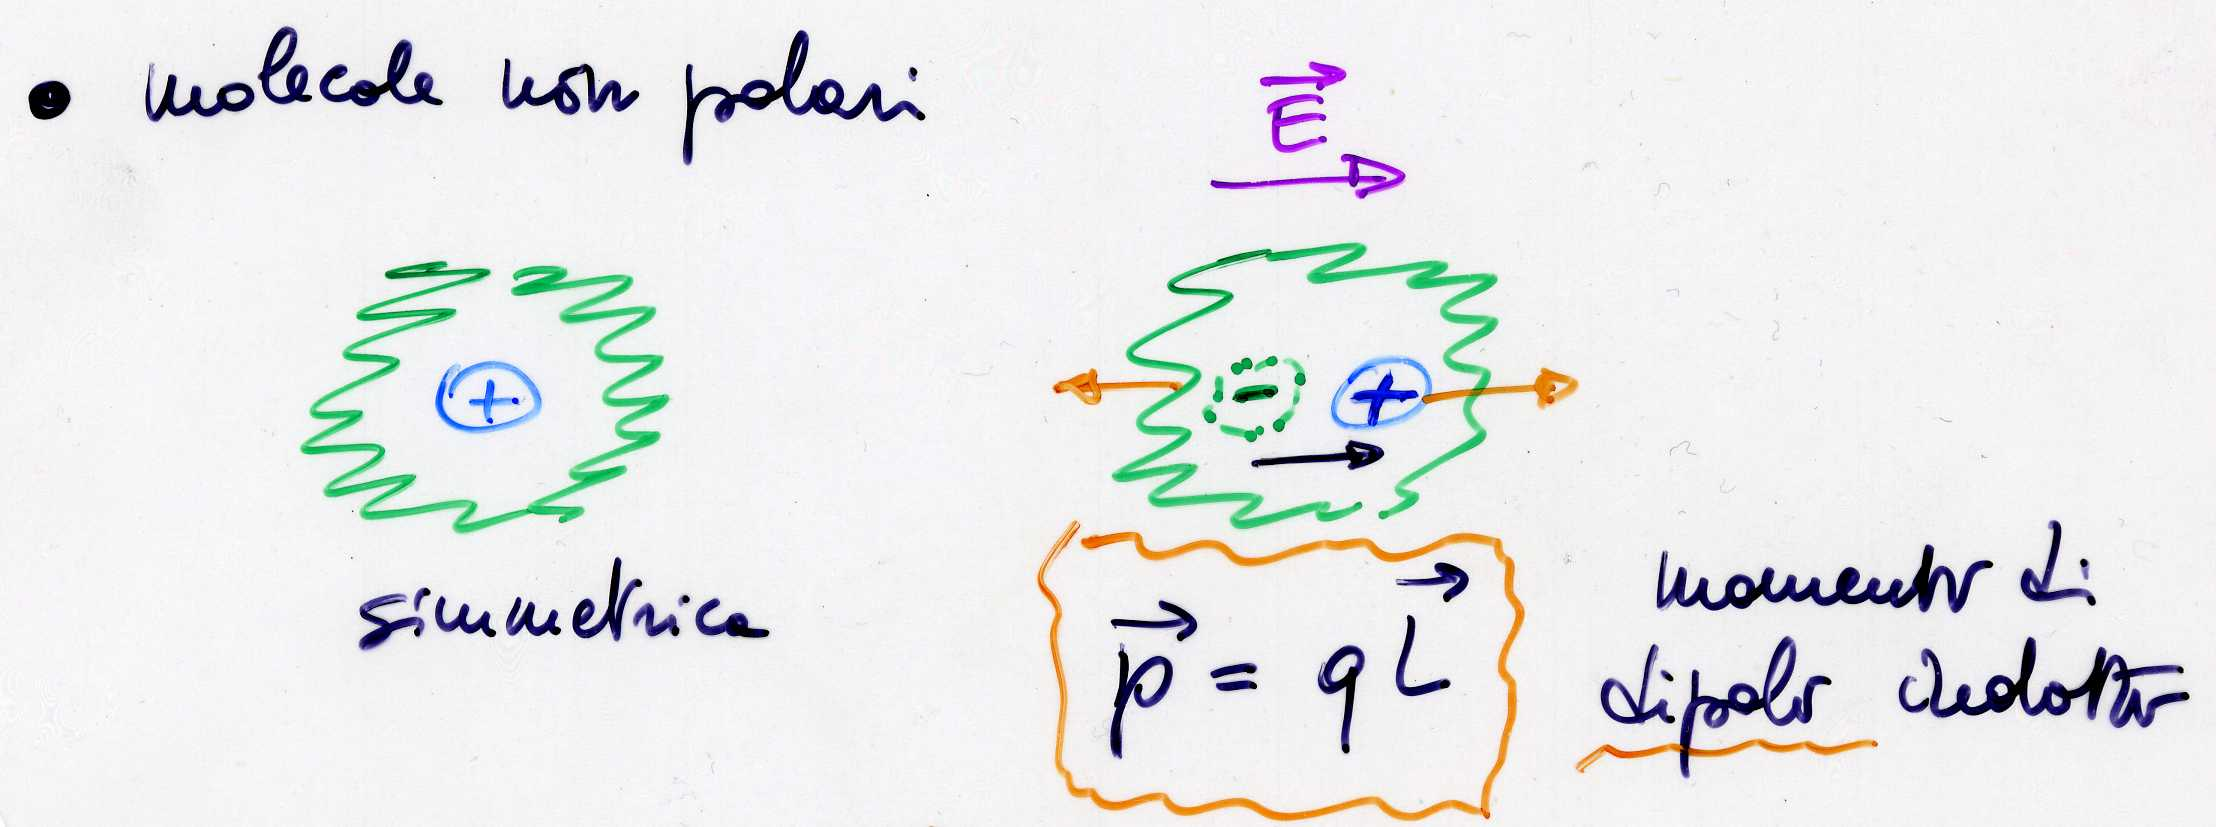 • molecole non polari
E
+
- +
simmetrica
p = q L
momento di
dipolo indotto